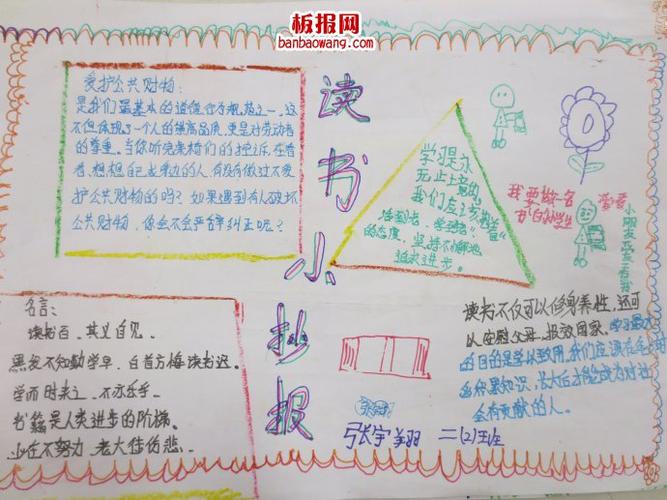 板报网
banbaowang.com
读书小抄报
爱护公共财物:
是我们最基本的道德行为规范之一,这
不但体现了一个人的崇高品质,更是对劳动者
的尊重。当你听完桌椅们的控诉,在看
看,想想自己身边的人有没有做过不爱
护公共财物的吗?如果遇到有人破坏
公共财物,你会不会严辞纠正呢?
学习是永
无止上境的
我们应该抱着"
活到老,学到老"
的态度,坚持不懈地
追求进步。
我要做一名
书
学生
爱看
名言:
读书百,其义自见。
黑发不知勤学早,白首方悔读书迟。
学而时来之,不亦乐乎。
书籍是人类进步的阶梯。
少年不努力,老大徒伤悲。
读书不仅可以修身养性,还可
以安慰父母,报效国家,学习最大
的目的是学以致用,我们应该
的积累知识,长大后才能成为对社
会有贡献的人。
张宇翔 二(2)班